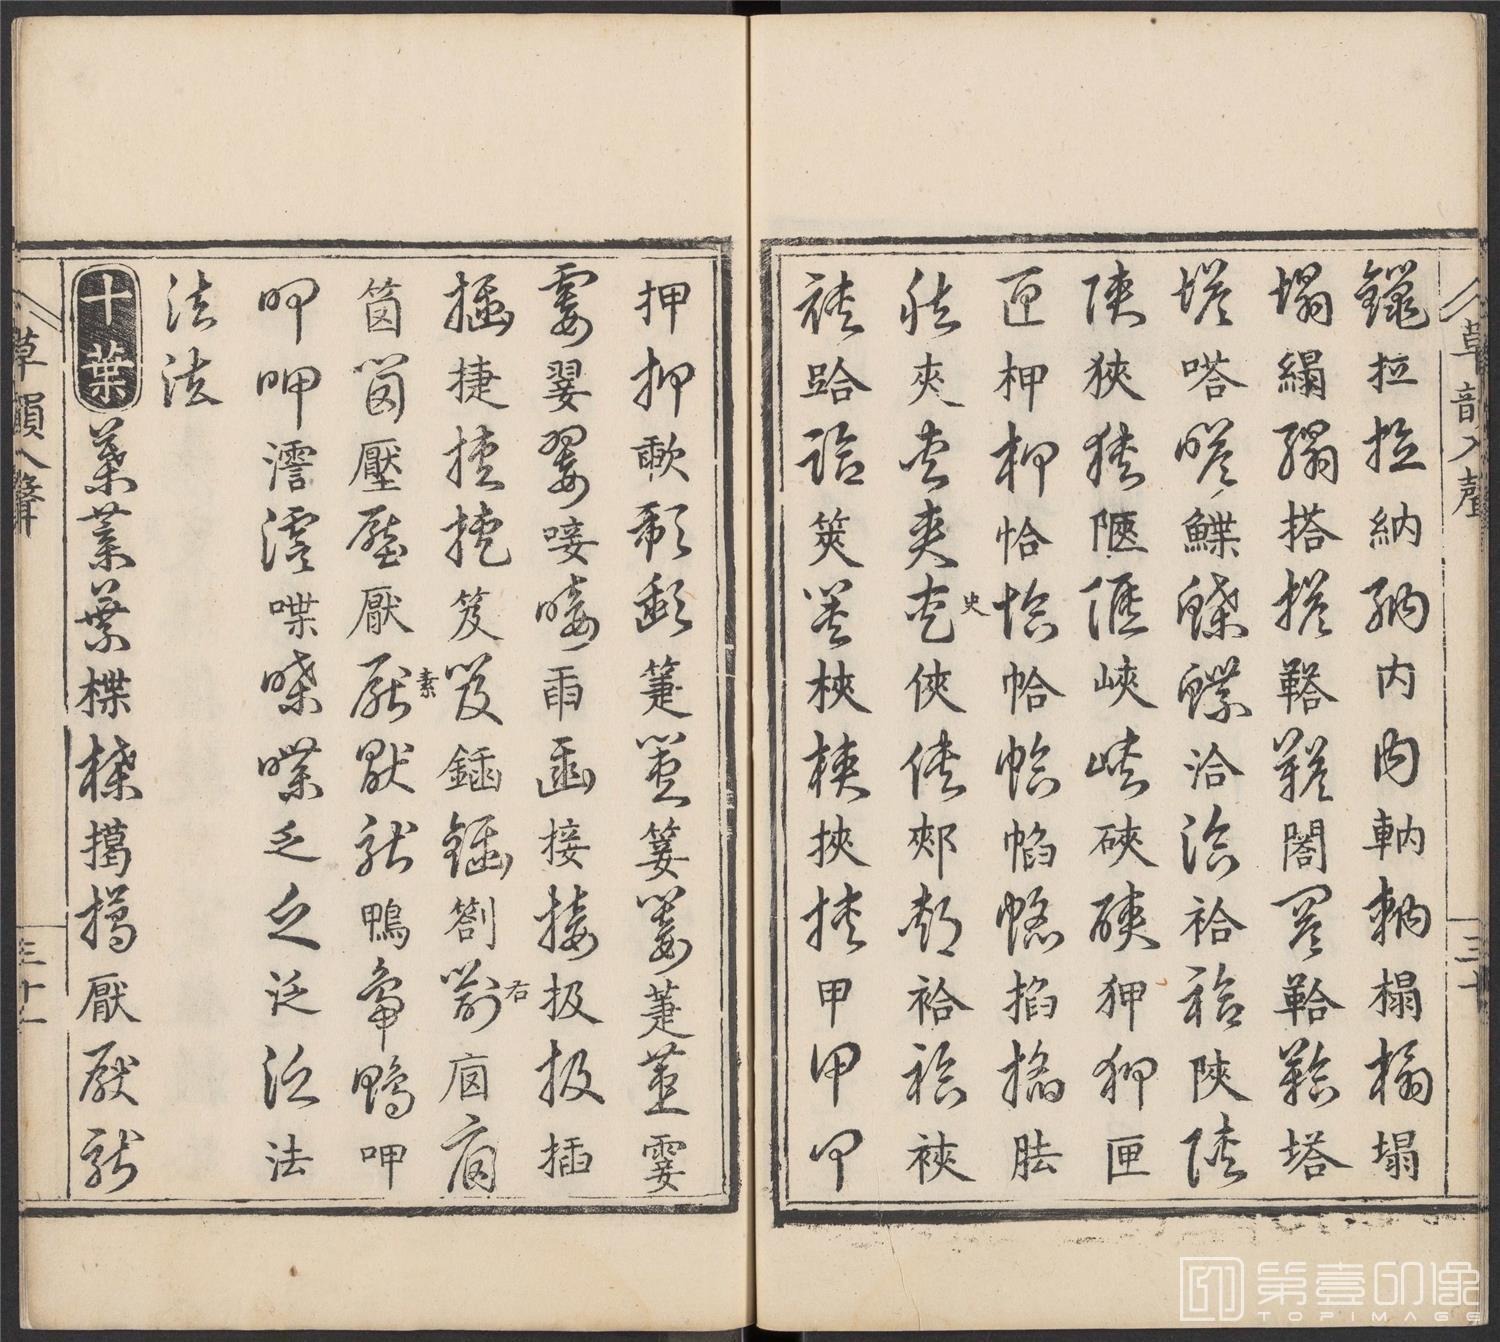 草韻入聲
三十
鑞拉拉納納内内軜軜榻榻塌
塌搭搭鞳鞳鞈鞈塔
塔嗒嗒鰈鰈鰈洽洽袷袷陜陜
陜狹狹陿陿峽峽硤硤狎狎匣
匣柙柙恰恰帢帢掐掐胠
胠夾夾夾夾史俠俠郟郟袷袷裌
裌跲跲筴筴梜梜挾挾甲甲甲
押押歃歃歃箑箑萐萐霎
霎翣翣唼唼臿臿接接扱扱插
插捷捷捷笈笈鍤鍤劄劄右
壓壓厭厭素厭厭鴨鴨鴨呷
呷呷喋喋喋乏乏泛泛法
法法
十葉
葉葉葉楪楪擖擖厭厭厭
草韻入聲
第壹印像
TOPIMAGE